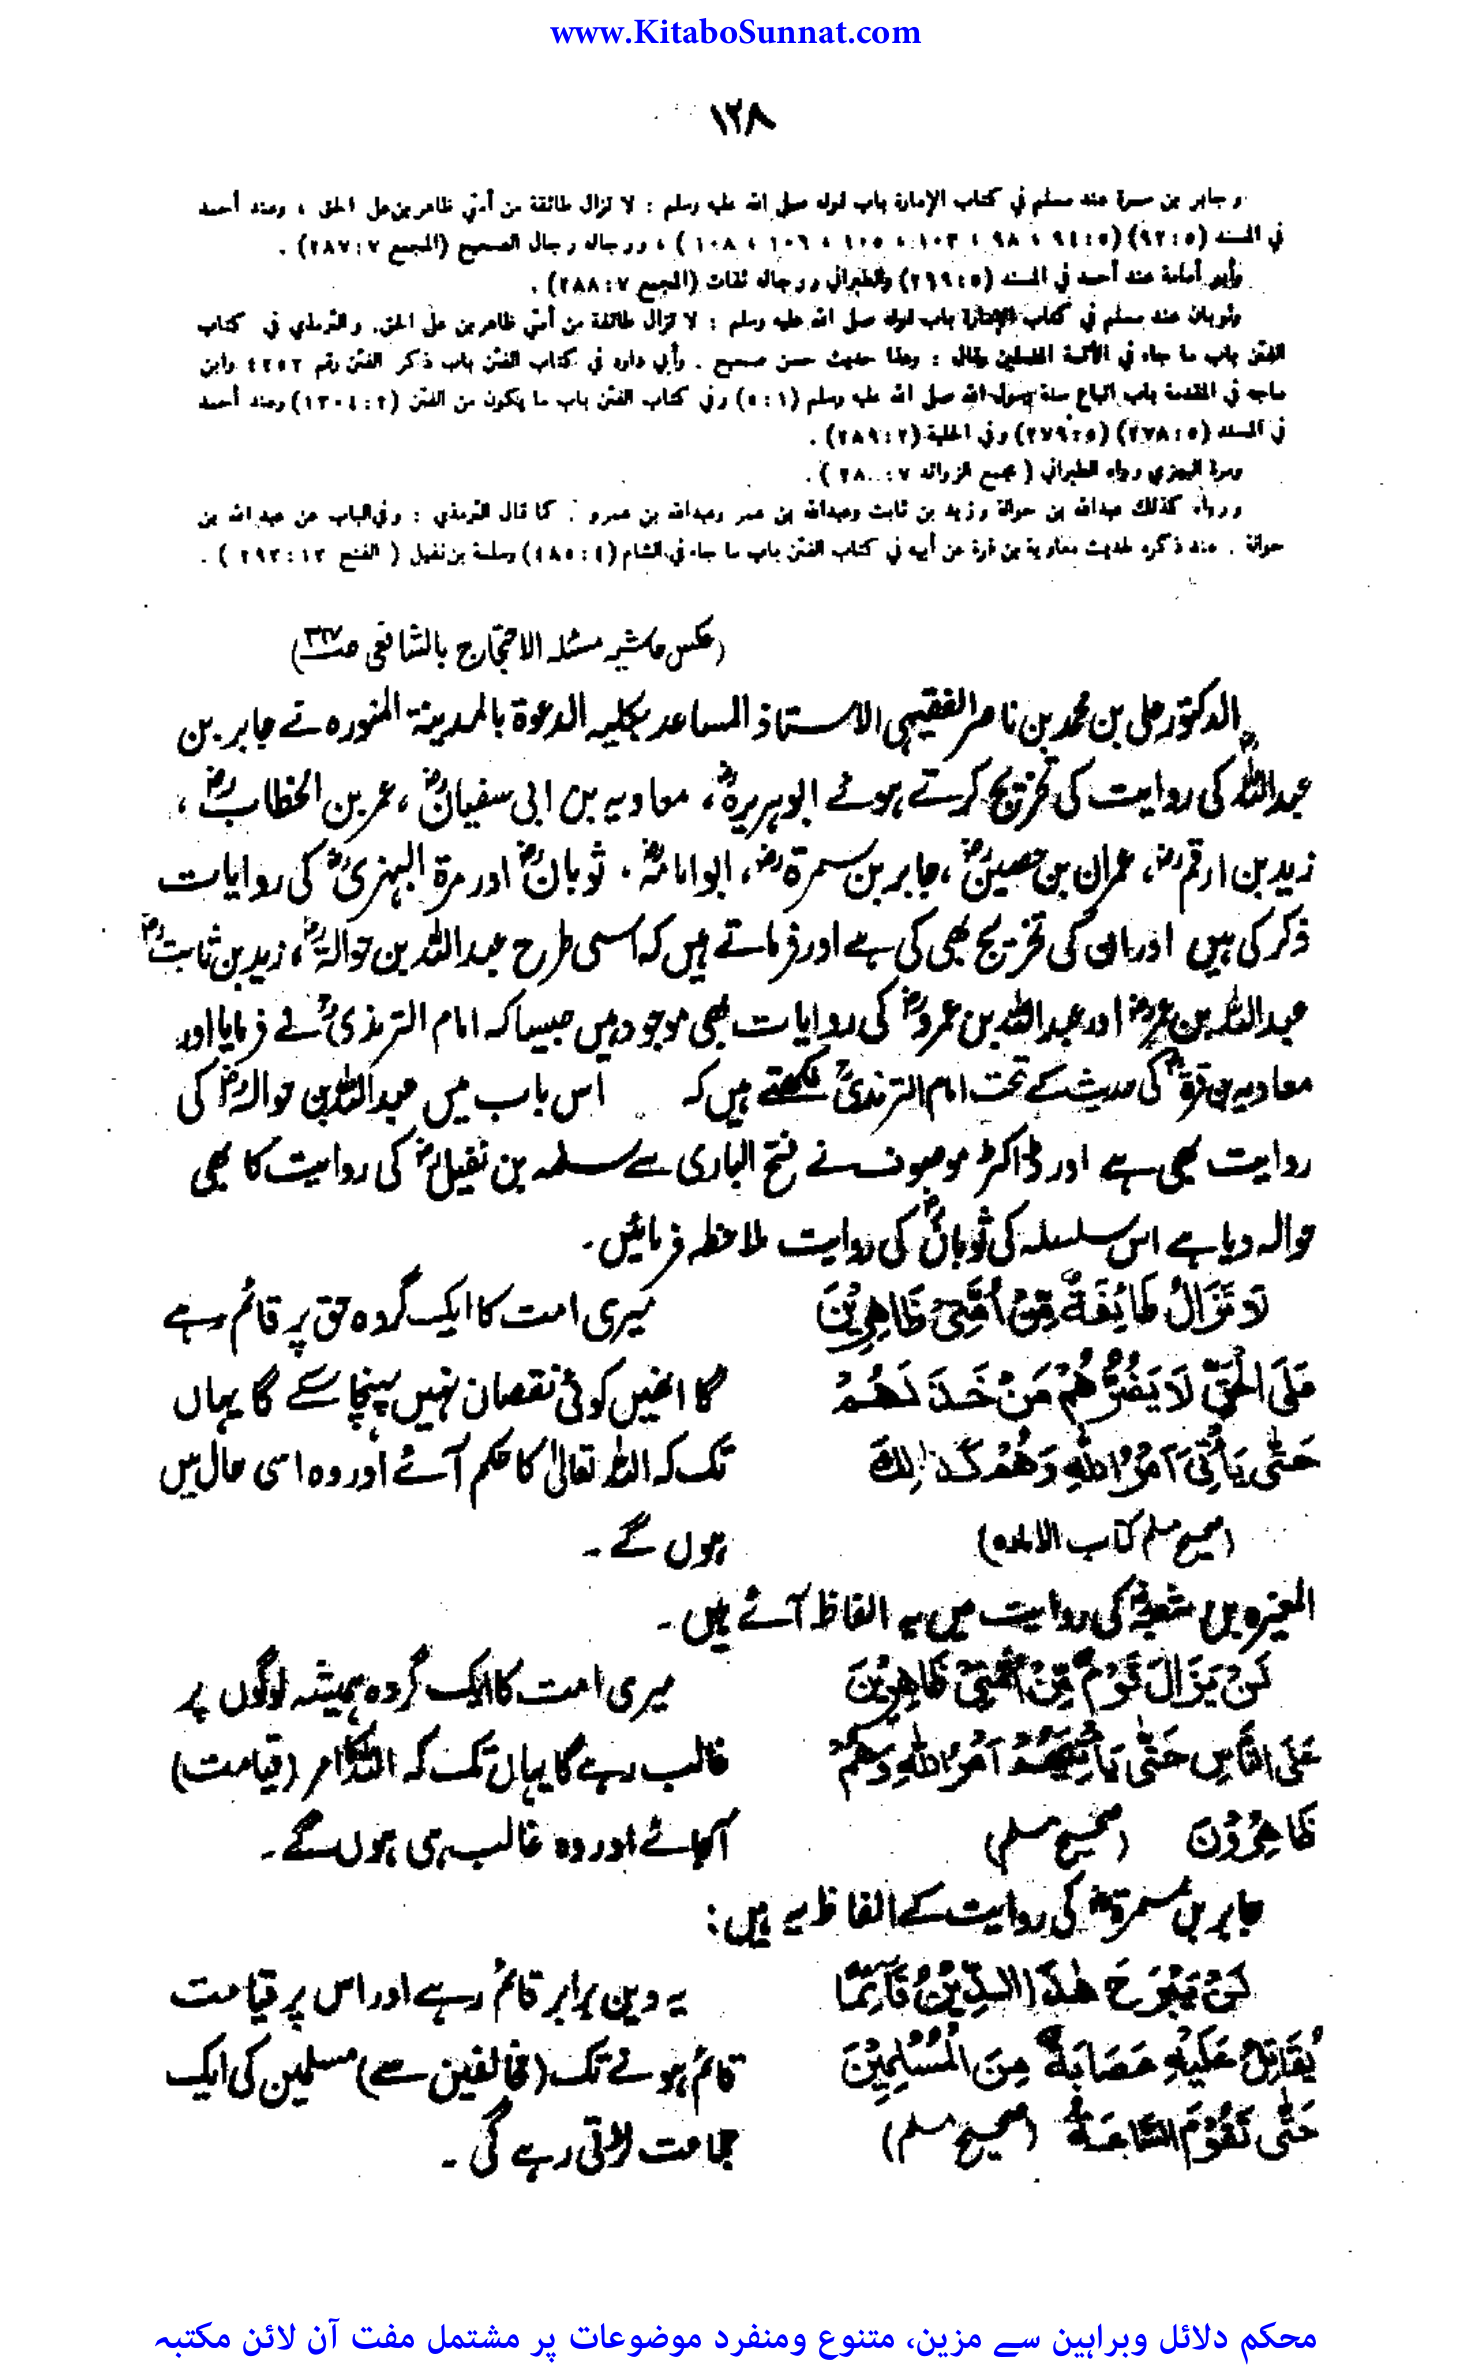 www.KitaboSunnat.com
١٢٨
وجابر بن سمرة عند مسلم في كتاب الإمارة باب قوله صلى الله عليه وسلم : لا تزال طائفة من أمتي ظاهرين على الحق ، وعند أحمد
في المسند (٩٢:٥) (٩٤:٥ ، ٩٨ ، ١٠٣ ، ١٠٥ ، ١٠٦ ، ١٠٨) ، ورجاله رجال الصحيح (المجمع ٢٨٧:٧) .
وأبو أمامة عند أحمد في المسند (٢٦٩:٥) والطبراني ورجاله ثقات (المجمع ٢٨٨:٧) .
وثوبان عند مسلم في كتاب الإمارة باب قوله صل الله عليه وسلم : لا تزال طائفة من أمتي ظاهرين على الحق. والترمذي في كتاب
الفتن باب ما جاء في الأئمة المضلين وقال : وهذا حديث حسن صحيح . وأبي داود في كتاب الفتن باب ذكر الفتن رقم ٤٢٥٢ وابن
ماجه في المقدمة باب اتباع سنة رسول الله صلى الله عليه وسلم (٥:١) وفي كتاب الفتن باب ما يكون من الفتن (١٣٠٤:٢) وعند أحمد
في المسند (٢٧٨:٥) (٢٧٩:٥) وفي الحلية (٢٨٩:٢) .
ومرة البهزي رواه الطبراني (مجمع الزوائد ٧: ) .
ورواه كذلك عبدالله بن حوالة وزيد بن ثابت وعبدالله بن عمر وعبدالله بن عمرو . كما قال الترمذي : وفي الباب عن عبد الله بن
حوالة . عند ذكره لحديث معاوية بن قرة عن أبيه في كتاب الفتن باب ما جاء في الشام (٤٨٥:٤) وسلمة بن نفيل ( الفتح ٢٩٣:١٣ ) .
(عکس حاشیہ مسئلہ الاحتجاج بالشافعی صـ۳۲)
الدکتور علی بن محمد بن ناصر الفقیہی الاستاذ المساعد بکلیہ الدعوۃ بالمدینۃ المنورہ نے جابر بن
عبداللہؓ کی روایت کی تخریج کرتے ہوئے ابوہریرہؓ، معاویہ بن ابی سفیانؓ، عمر بن الخطابؓ،
زید بن ارقمؓ، عمران بن حصینؓ، جابر بن سمرۃؓ، ابوامامہؓ، ثوبانؓ اور مرۃ البہزیؓ کی روایات
ذکر کی ہیں اور ان کی تخریج بھی کی ہے اور فرماتے ہیں کہ اسی طرح عبداللہ بن حوالۃؓ، زید بن ثابتؓ
عبداللہ بن عمرؓ اور عبداللہ بن عمروؓ کی روایات بھی موجود ہیں جیسا کہ امام الترمذیؒ نے فرمایا اور
معاویہ بن قرۃؓ کی حدیث کے تحت امام الترمذیؒ لکھتے ہیں کہ اس باب میں عبداللہ بن حوالہؓ کی
روایت بھی ہے اور ڈاکٹر موصوف نے فتح الباری سے سلمہ بن نفیلؓ کی روایت کا بھی
حوالہ دیا ہے اس سلسلہ کی ثوبانؓ کی روایت ملاحظہ فرمائیں۔
لَا تَزَالُ طَائِفَةٌ مِّنْ اُمَّتِیْ ظَاهِرِیْنَ
عَلَی الْحَقِّ لَا یَضُرُّهُمْ مَنْ خَذَلَهُمْ
حَتّٰی یَأْتِیَ اَمْرُ اللّٰهِ وَهُمْ كَذٰلِكَ
(صحیح مسلم کتاب الامارہ)
میری امت کا ایک گروہ حق پر قائم رہے
گا انھیں کوئی نقصان نہیں پہنچا سکے گا یہاں
تک کہ اللہ تعالیٰ کا حکم آئے اور وہ اسی حال میں
ہوں گے۔
المغیرہ بن شعبہؓ کی روایت میں یہ الفاظ آئے ہیں۔
لَنْ یَزَالَ قَوْمٌ مِّنْ اُمَّتِیْ ظَاهِرِیْنَ
عَلَی النَّاسِ حَتّٰی یَأْتِیَهُمْ اَمْرُ اللّٰهِ وَهُمْ
ظَاهِرُوْنَ (صحیح مسلم)
میری امت کا ایک گروہ ہمیشہ لوگوں پر
غالب رہے گا یہاں تک کہ اللہ کا امر (قیامت)
آجائے اور وہ غالب ہی ہوں گے۔
جابر بن سمرۃؓ کی روایت کے الفاظ یہ ہیں:
لَنْ یَّبْرَحَ هٰذَا الدِّیْنُ قَآئِمًا
یُقَاتِلُ عَلَیْهِ عِصَابَةٌ مِنَ الْمُسْلِمِیْنَ
حَتّٰی تَقُوْمَ السَّاعَةُ (صحیح مسلم)
یہ دین برابر قائم رہے اور اس پر قیامت
قائم ہونے تک (مخالفین سے) مسلمین کی ایک
جماعت لڑتی رہے گی۔
محکم دلائل وبراہین سے مزین، متنوع ومنفرد موضوعات پر مشتمل مفت آن لائن مکتبہ